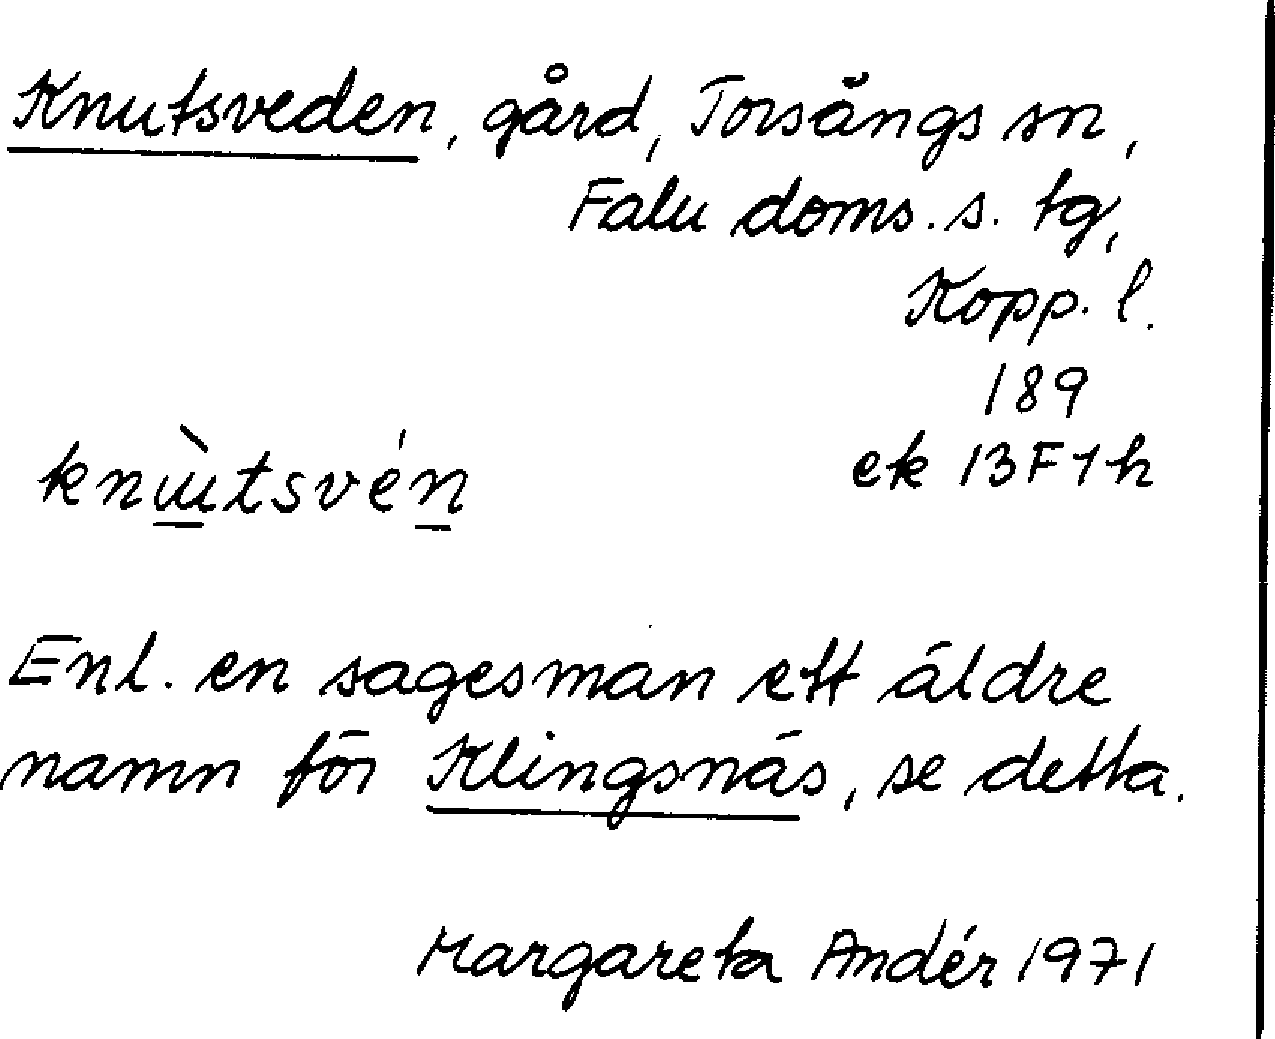 Knutsveden, gård, Torsångs sn,
Falu doms. s. tg,
Kopp. l.
189
ek 13F1h
knùtsvén
Enl. en sagesman ett äldre
namn för Klingsnäs, se detta.
Margareta Andér 1971